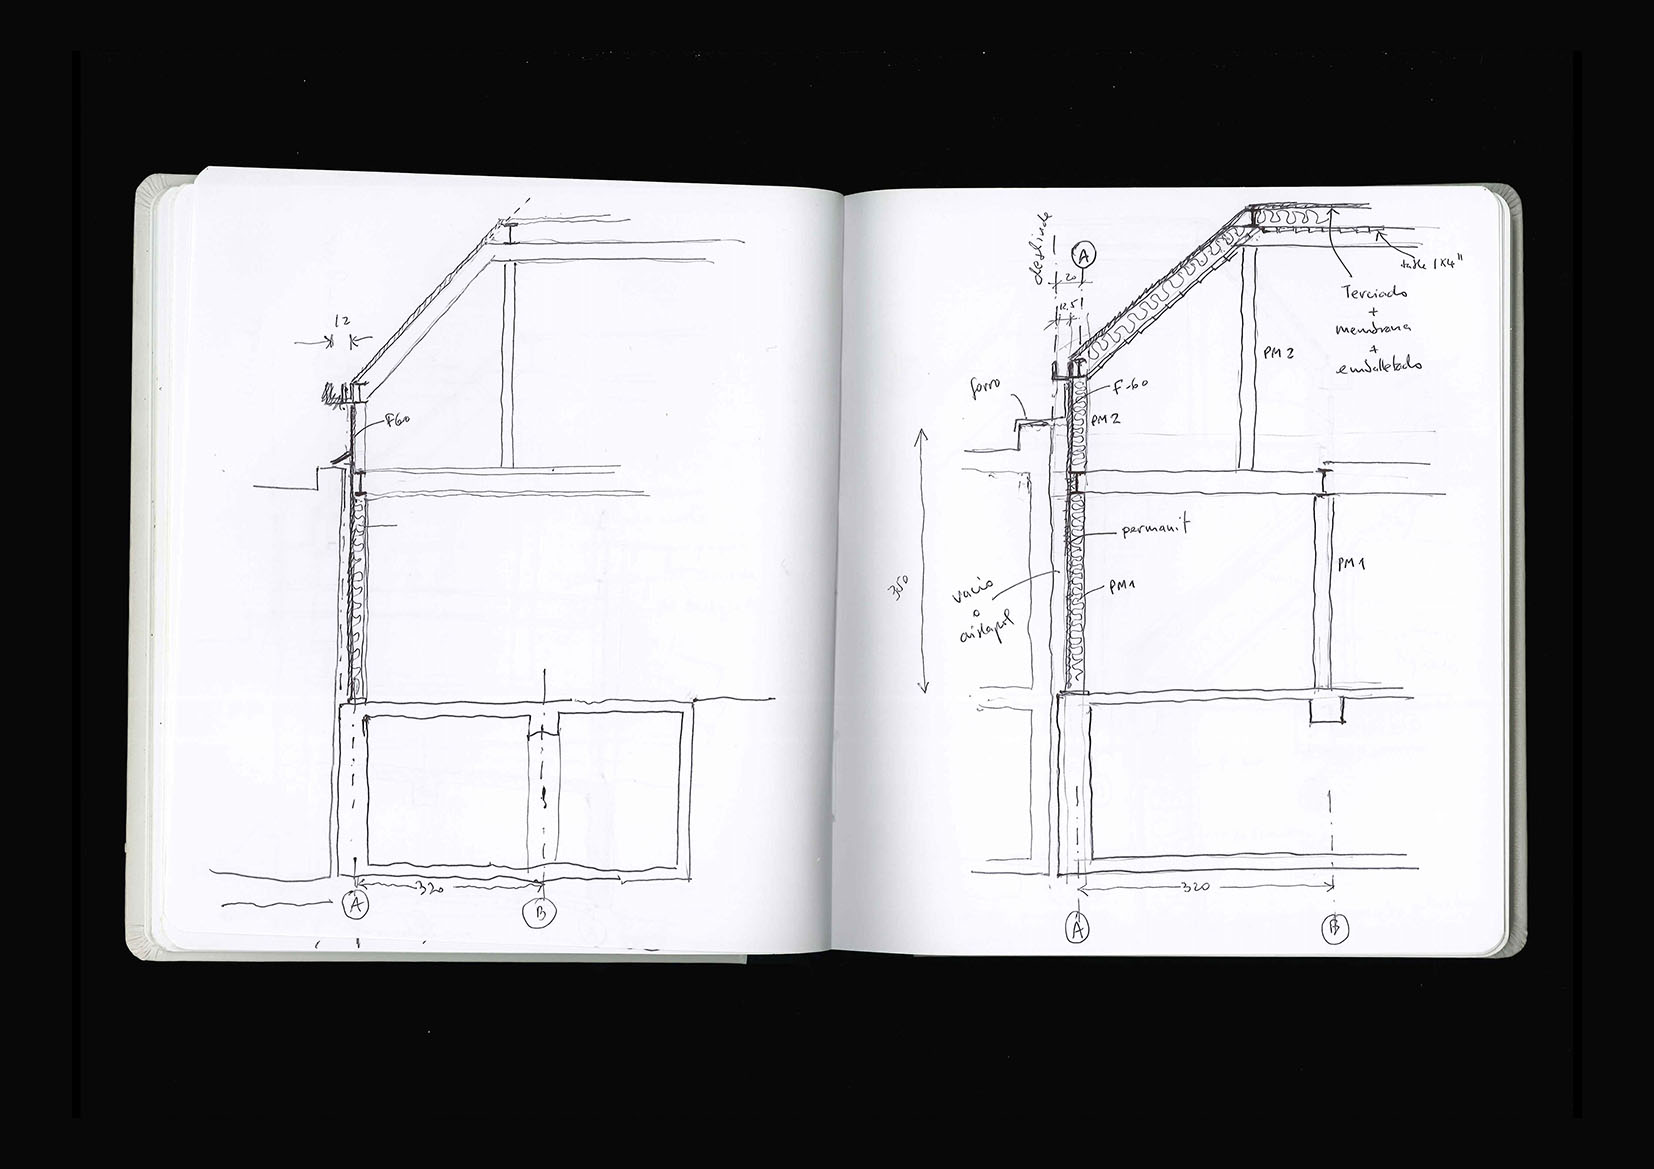 12
F60
320
A
B
deslinde
A
20
12.5
tabla 1x4"
Terciado
+
membrana
+
emballetado
PM2
forro
F-60
PM2
350
permanit
PM1
PM1
vacio
o
aislapol
320
A
B